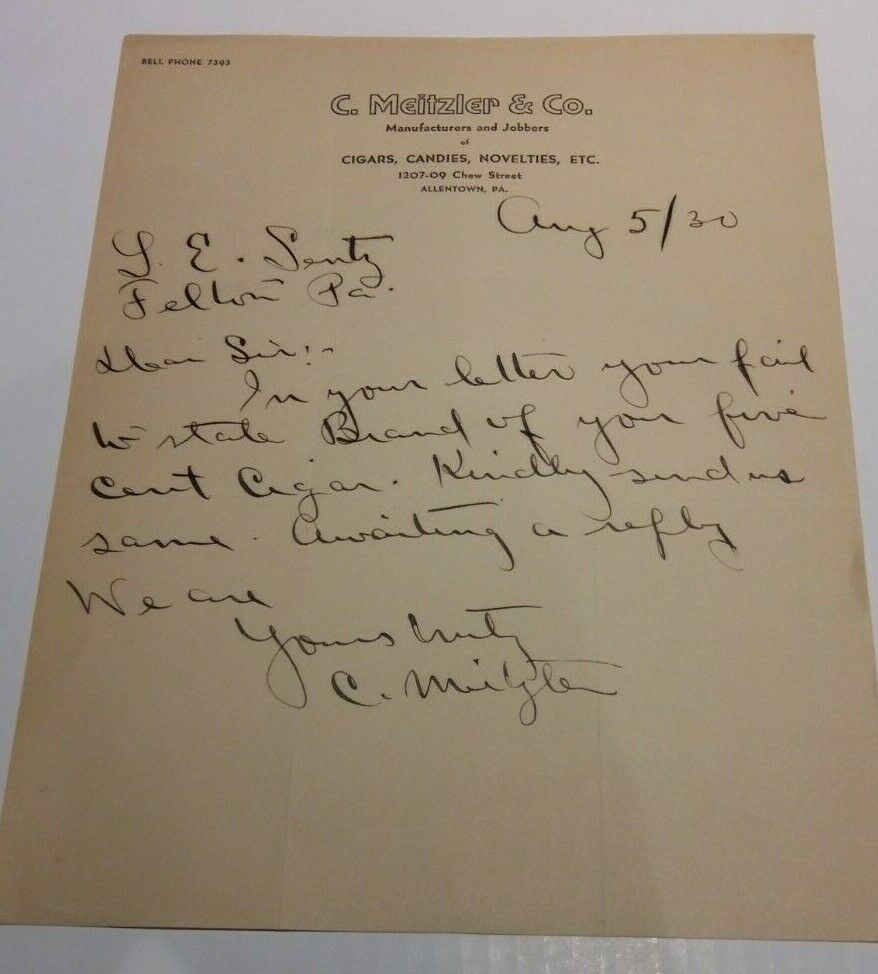 BELL PHONE 7393
C. Meitzler & Co.
Manufacturers and Jobbers
of
CIGARS, CANDIES, NOVELTIES, ETC.
1207-09 Chew Street
ALLENTOWN, PA.
Aug 5/30
L. E. Sentz
Felton Pa.
Dear Sir:-
In your letter your fail
to state Brand of your five
cent Cigar. Kindly send us
same. Awaiting a reply
We are
Yours truly
C. Meitzler